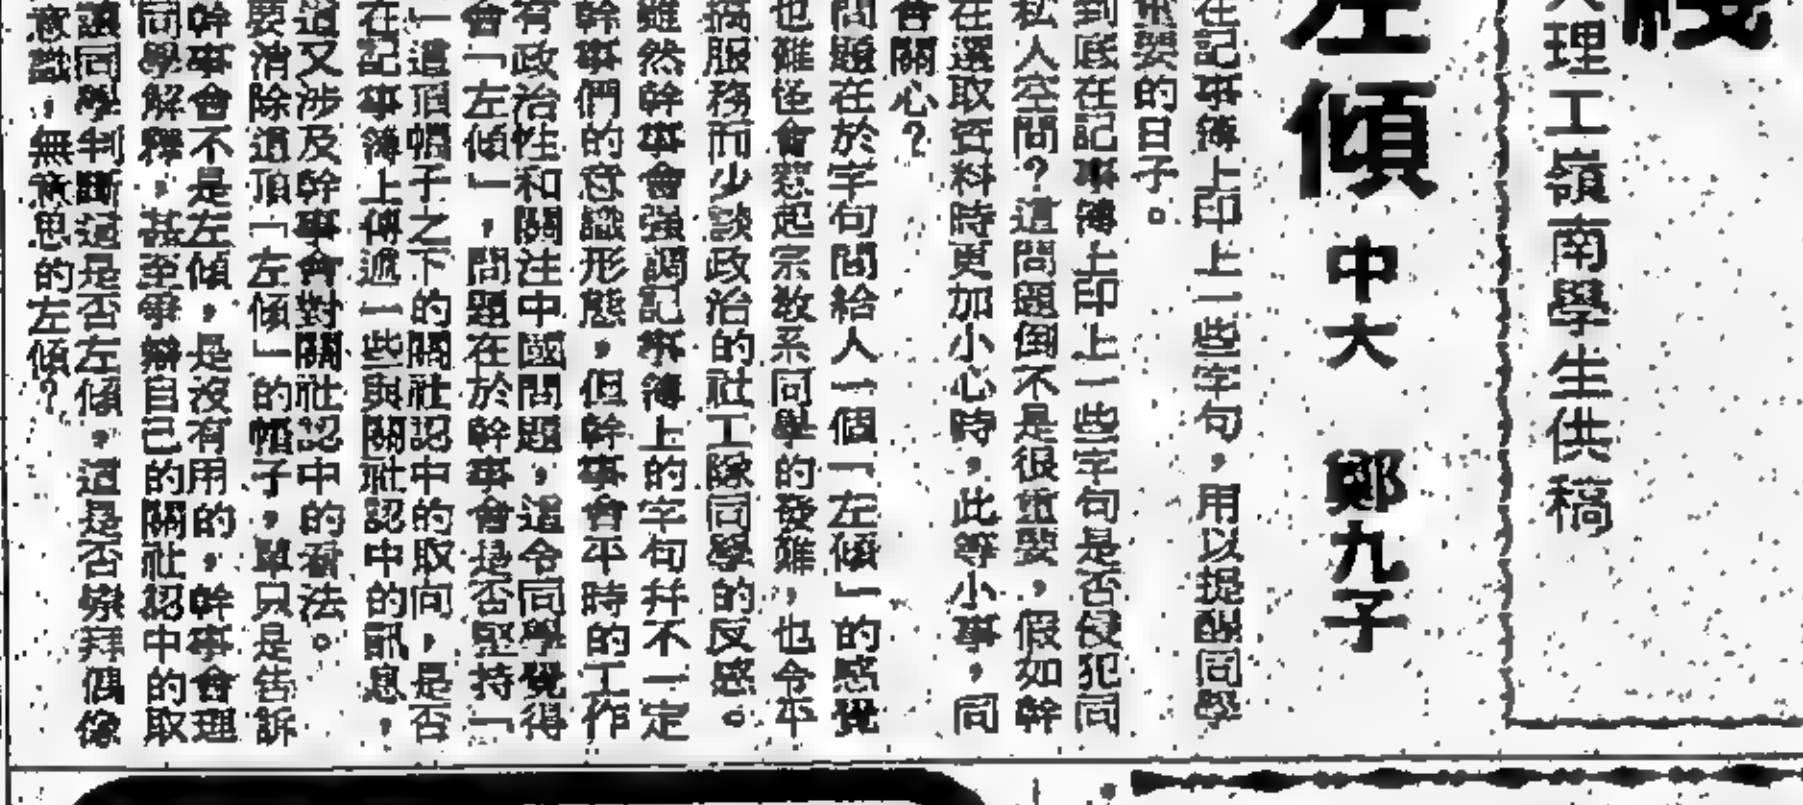 大理工嶺南學生供稿
左傾
中大 鄭九子
在記事簿上印上一些字句，用以提醒同學
重要的日子。
到底在記事簿上印上一些字句是否侵犯同
私人空間？這問題倒不是很重要，假如幹
在選取資料時更加小心時，此等小事，同
會關心？
問題在於字句間給人一個「左傾」的感覺
也難怪會惹起宗教系同學的發難，也令平
搞服務而少談政治的社工隊同學的反感。
雖然幹事會强調記事簿上的字句幷不一定
幹事們的意識形態，但幹事會平時的工作
有政治性和關注中國問題，這令同學覺得
會「左傾」，問題在於幹事會是否堅持「
一這頂帽子之下的關社認中的取向，是否
在記事簿上傳遞一些與關社認中的訊息，
這又涉及幹事會對關社認中的看法。
要消除這頂「左傾」的帽子，單只是告訴
幹事會不是左傾，是沒有用的，幹事會理
同學解釋，甚至爭辯自己的關社認中的取
讓同學判斷這是否左傾，這是否崇拜偶像
意識，無意思的左傾？